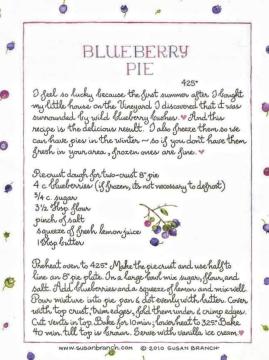 BLUEBERRY
PIE
425°
I feel so lucky because the first summer after I bought
my little house on the Vineyard I discovered that it was
surrounded by wild blueberry bushes. ♥ And this
recipe is the delicious result. I also freeze them so we
can have pies in the winter — so if you don't have them
fresh in your area, frozen ones are fine. ♥
Piecrust dough for two-crust 8" pie
4 c. blueberries (if frozen, its not necessary to defrost)
3/4 c. sugar
3 1/2 Tbsp. flour
pinch of salt
squeeze of fresh lemon juice
1 Tbsp. butter
Preheat oven to 425°. Make the piecrust and use half to
line an 8" pie plate. In a large bowl mix sugar, flour, and
salt. Add blueberries and a squeeze of lemon and mix well.
Pour mixture into pie pan & dot evenly with butter. Cover
with top crust, trim edges, fold them under & crimp edges.
Cut vents in top. Bake for 10 min.; lower heat to 325°. Bake
40 min. till top is brown. Serve with vanilla ice cream. ♥
www.susanbranch.com © 2010 SUSAN BRANCH